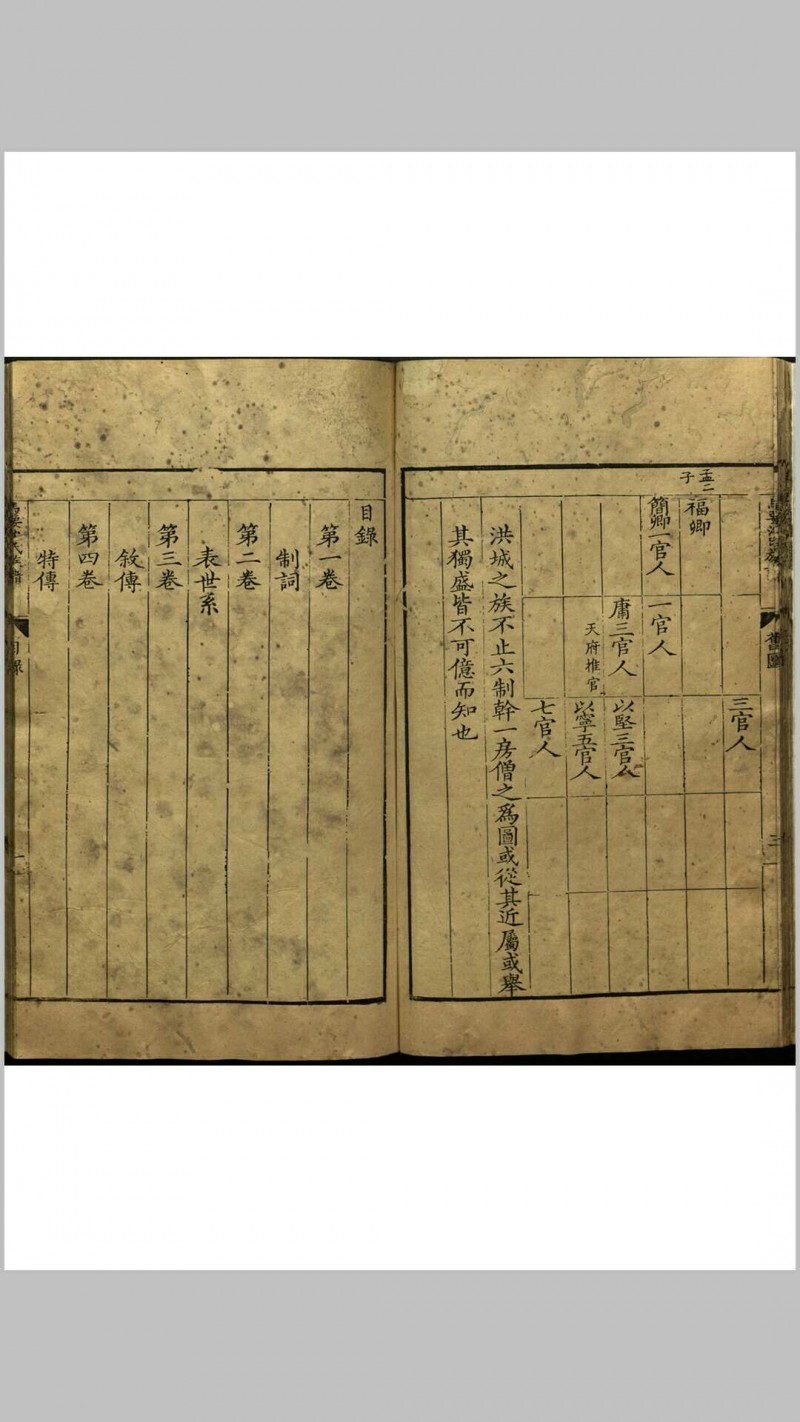 三
三官人
孟二子
福卿
簡卿一官人
一官人
庸三官人
天府推官
以堅三官人
以寧五官人
七官人
洪城之族不止六制幹一房僧之為圖或從其近屬或舉
其獨盛皆不可億而知也
目錄
第一卷
制詞
第二卷
表世系
第三卷
敘傳
第四卷
特傳
目錄
一